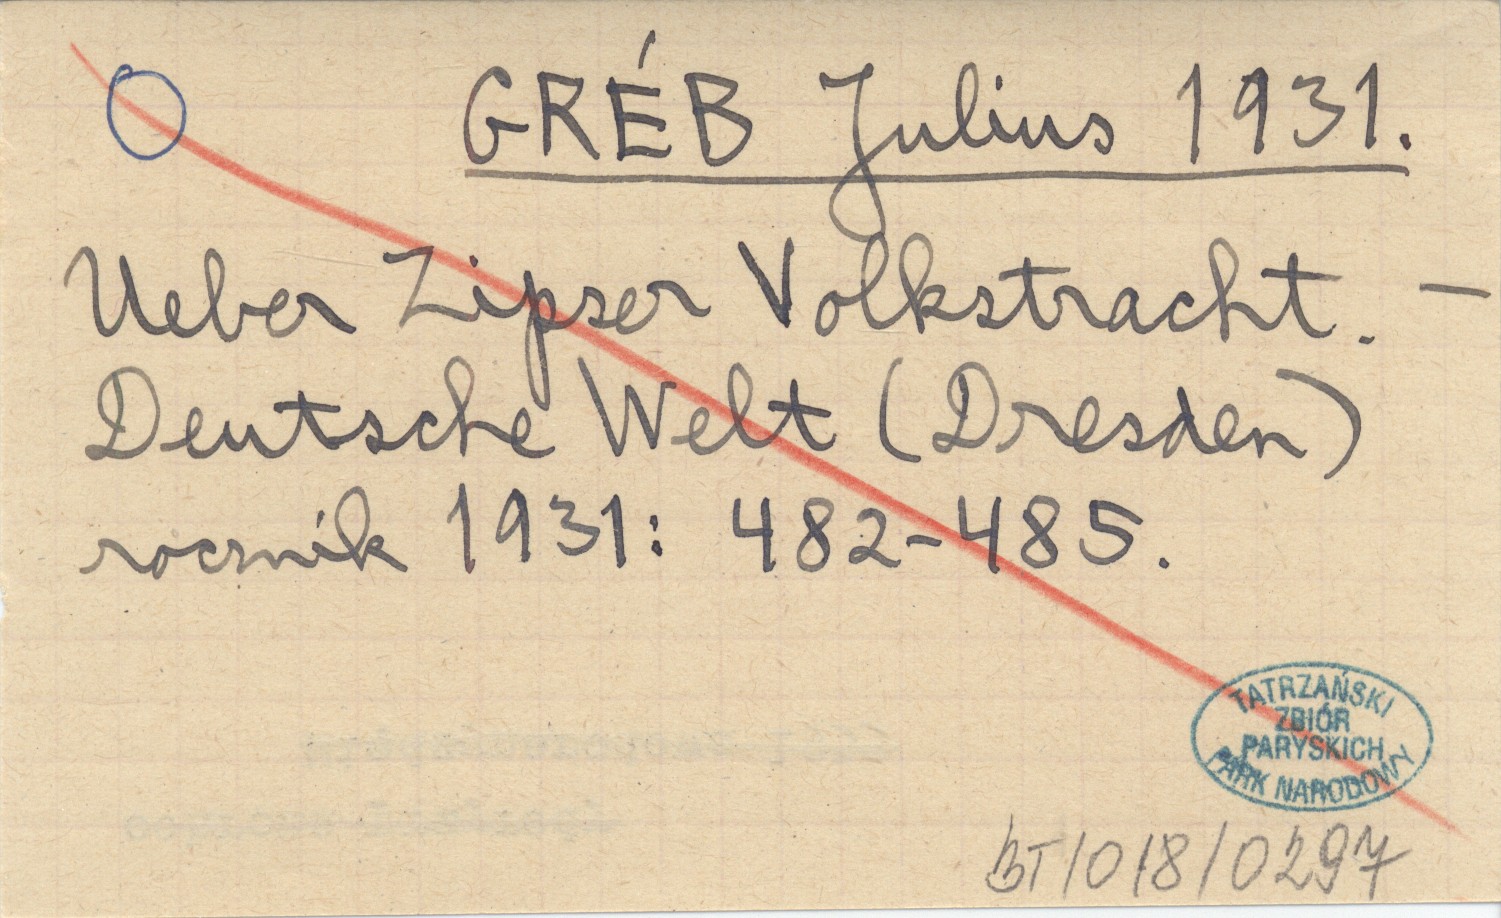 GRÉB Julius 1931.
Ueber Zipser Volkstracht. —
Deutsche Welt (Dresden)
rocznik 1931: 482-485.
TATRZAŃSKI
ZBIÓR
PARYSKICH
PARK NARODOWY
BT/018/0297